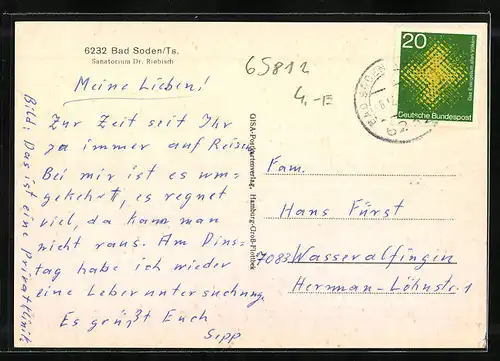 6232 Bad Soden/Ts.
Sanatorium Dr. Riebisch
Meine Lieben!
Zur Zeit seit Ihr
ja immer auf Reisen.
Bei mir ist es um=
gekehrt, es regnet
viel, da kann man
nicht raus. Am Dins=
tag habe ich wieder
eine Leberuntersuchung.
Es grüßt Euch
Sepp
Bild: Das ist eine Privatklinik
GISA-Postkartenverlag, Hamburg-Groß-Flottbek
65812
4,-E
20
Das Evangelium allen Völkern
Deutsche Bundespost
BAD SODEN
62
Fam.
Hans Fürst
7083 Wasseralfingen
Herman-Löhnstr. 1